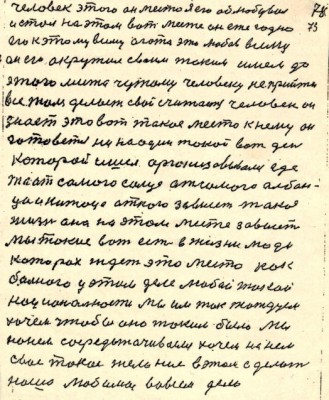 человек этого он место его облюбувал 78
и стоял на этом вот месте он ежегодно 73
его к этому вину охота это любов всему
он его окрутил своим таким имел до
этого места чужому человеку не прийти
все этим делают свой считают человек он
знает это вот такое место к нему он
готовется ни на один такой вот ден
который организовывали где
то от самого солца от самого албан-
ца и китайца от кого зависит такая
жизн она на этом месте зависит
мы такие вот ест в жизни люди
которох ждет это место как
балного у этом деле любой такой
националности мы им так жаждуем
хочем чтобы оно таким было мы
на нем сосредотачивали хочем на нем
свое такое желание в этом сделат
наша любимая вовсем дело